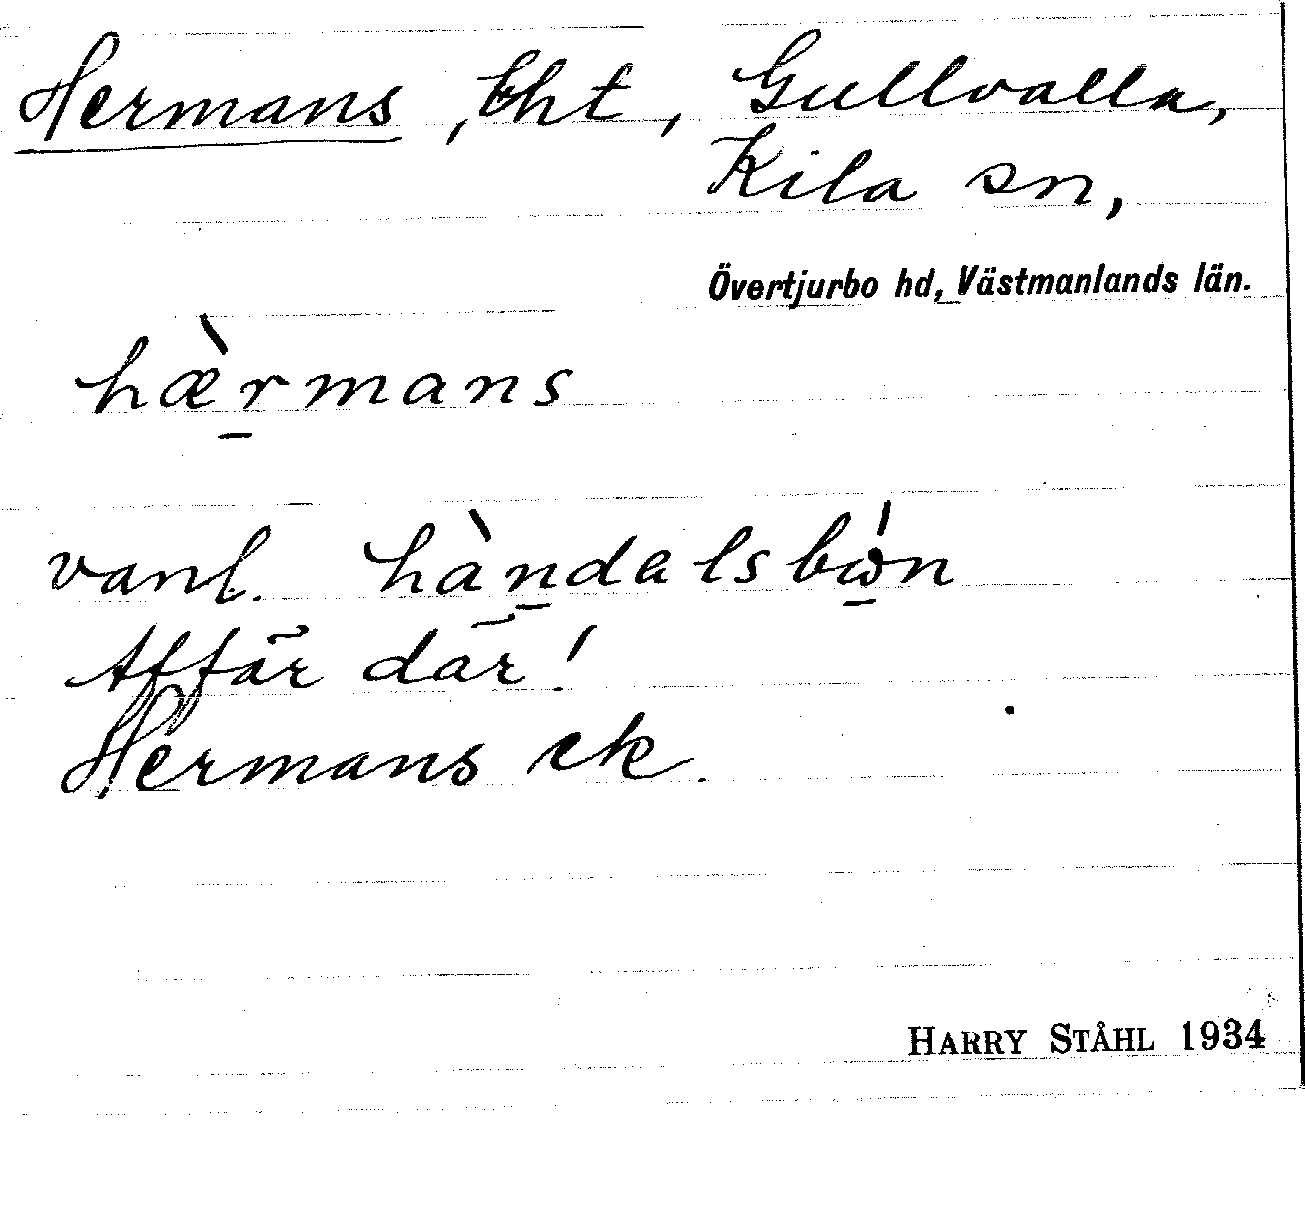 Hermans, lht, Gullvalla,
Kila sn,
Övertjurbo hd, Västmanlands län.
hæ̀r̠mans
vanl. hàn̠dalsbώ̠n
Affär där!
Hermans ek.
HARRY STÅHL 1934